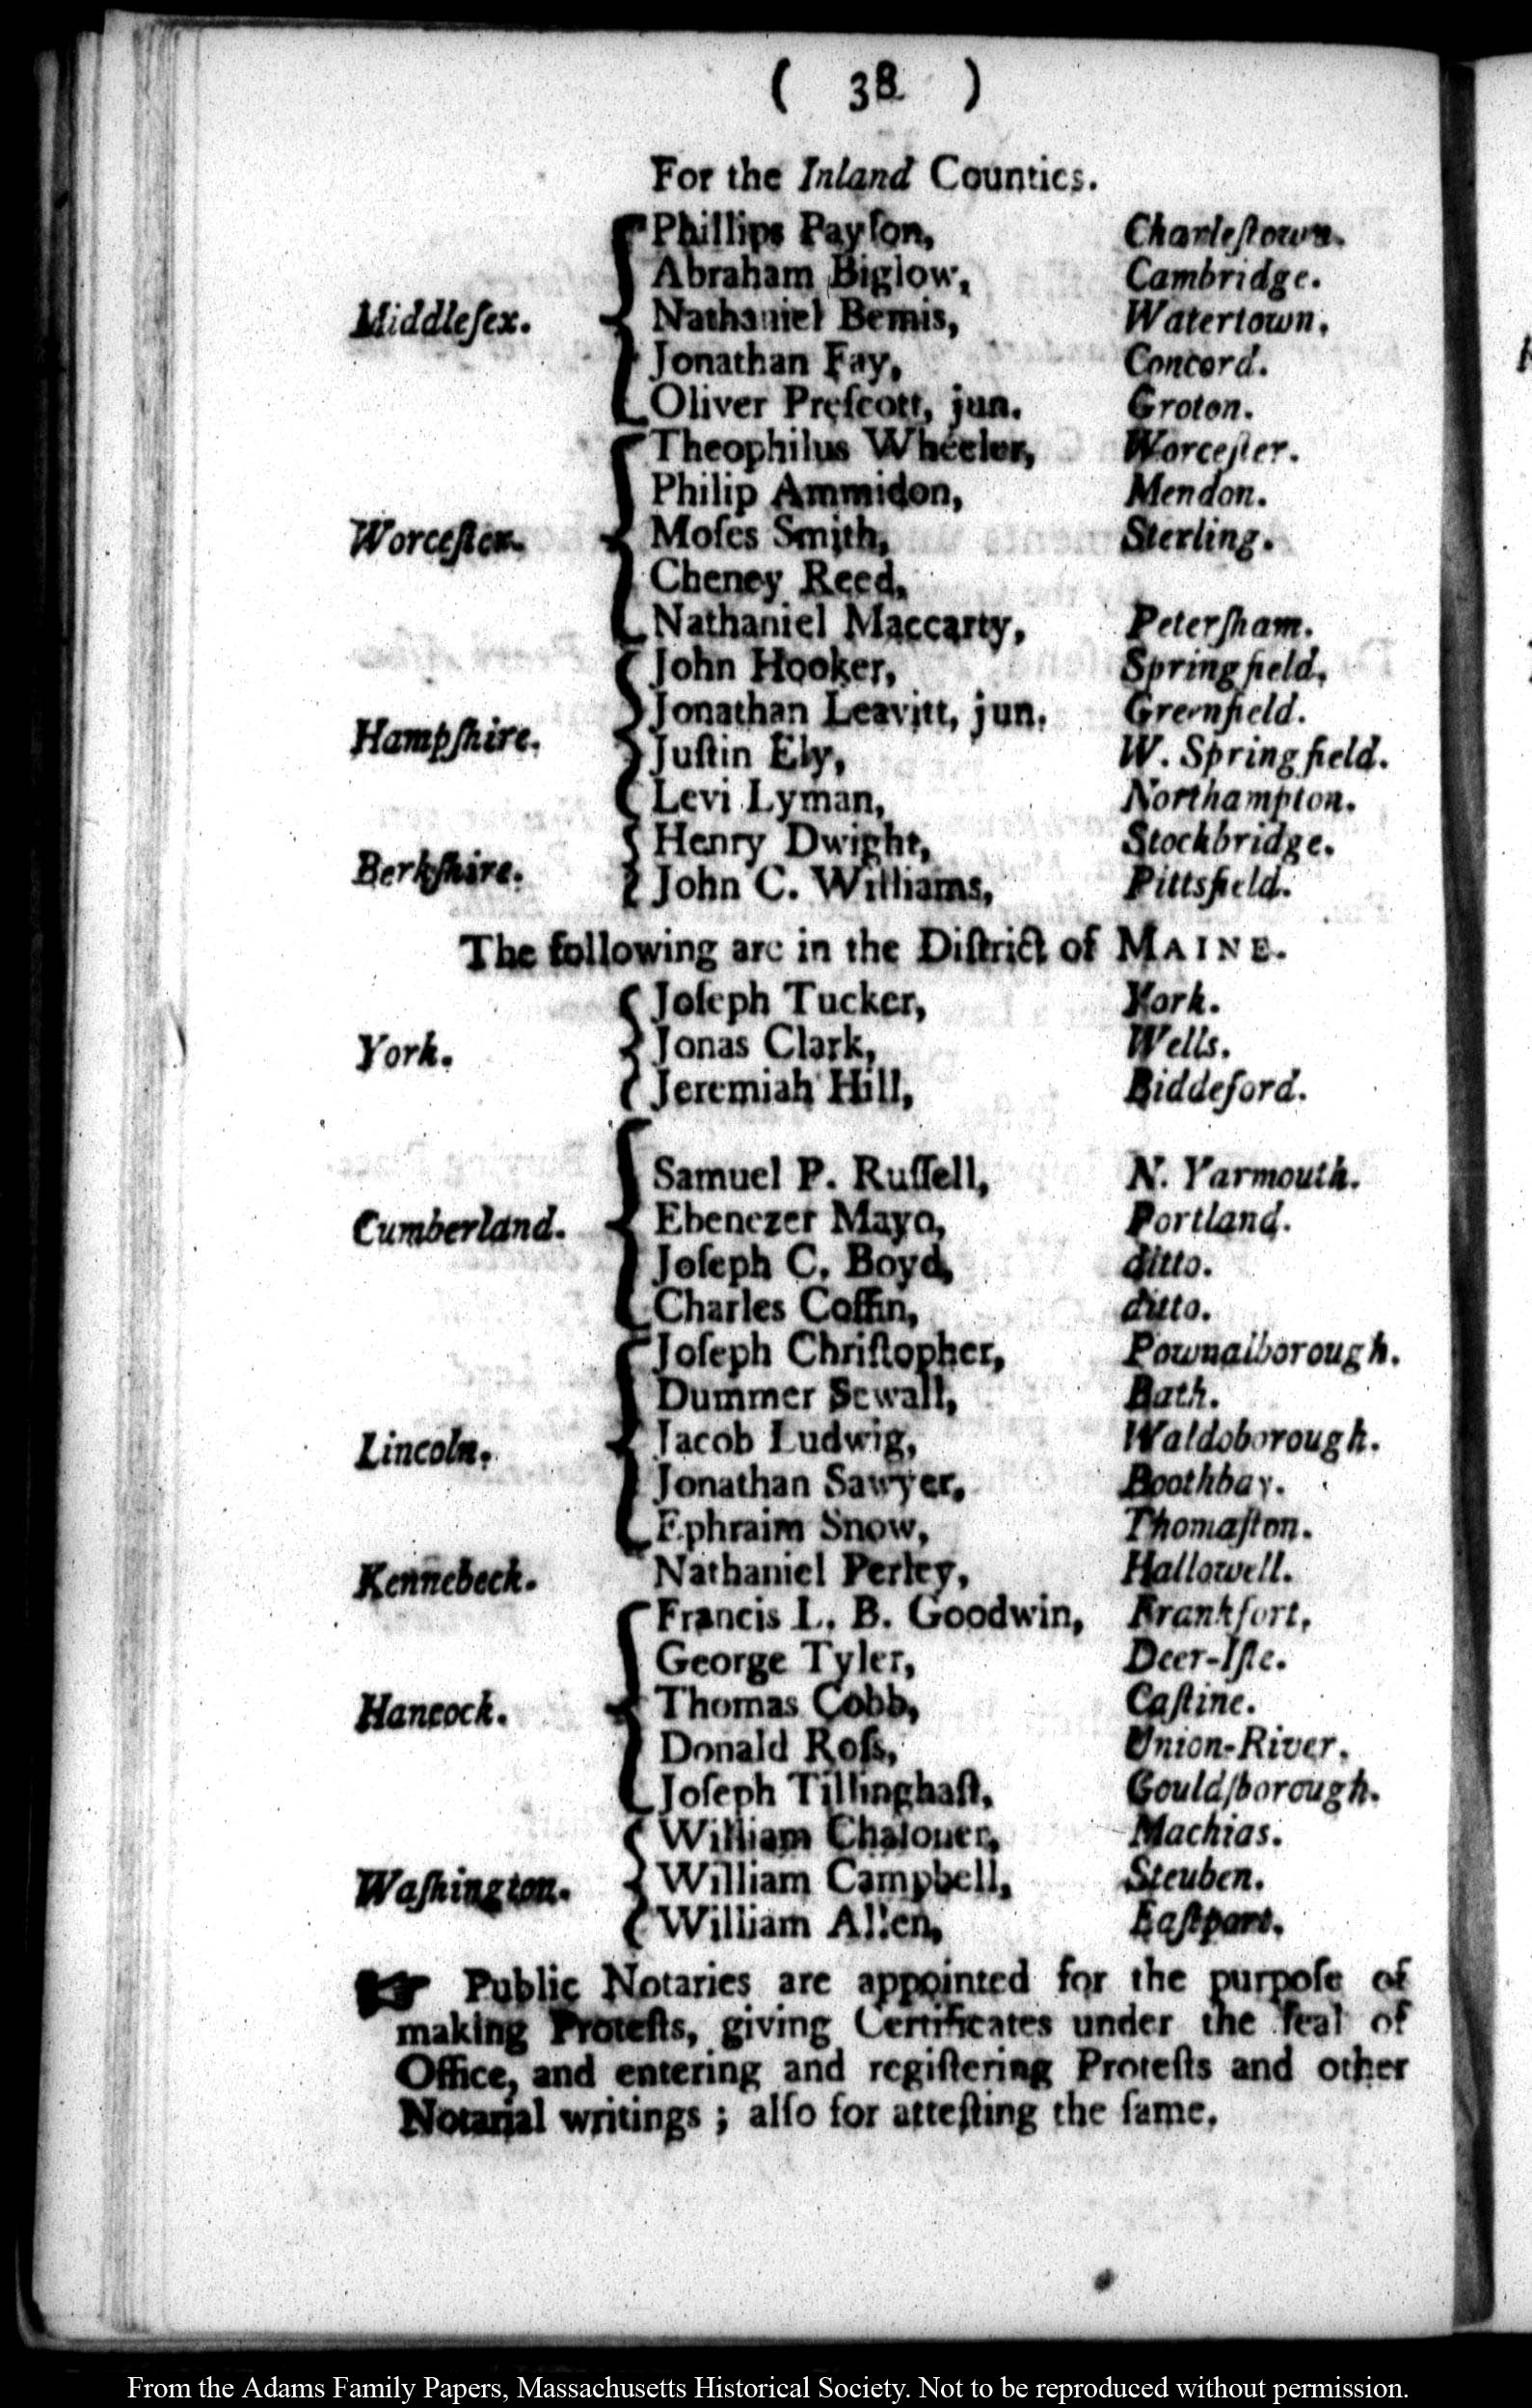 ( 38 )
For the Inland Counties.
Phillips Payſon, Charleſtown.
Abraham Biglow, Cambridge.
Middleſex. Nathaniel Bemis, Watertown.
Jonathan Fay, Concord.
Oliver Preſcott, jun. Groton.
Theophilus Wheeler, Worceſter.
Philip Ammidon, Mendon.
Worceſter. Moſes Smith, Sterling.
Cheney Reed,
Nathaniel Maccarty, Peterſham.
John Hooker, Springfield.
Jonathan Leavitt, jun. Greenfield.
Hampſhire. Juſtin Ely, W. Springfield.
Levi Lyman, Northampton.
Henry Dwight, Stockbridge.
Berkſhire. John C. Williams, Pittsfield.
The following are in the Diſtrict of MAINE.
Joſeph Tucker, York.
York. Jonas Clark, Wells.
Jeremiah Hill, Biddeford.
Samuel P. Ruſſell, N. Yarmouth.
Cumberland. Ebenezer Mayo, Portland.
Joſeph C. Boyd, ditto.
Charles Coffin, ditto.
Joſeph Chriſtopher, Pownalborough.
Dummer Sewall, Bath.
Lincoln. Jacob Ludwig, Waldoborough.
Jonathan Sawyer, Boothbay.
Ephraim Snow, Thomaſton.
Kennebeck. Nathaniel Perley, Hallowell.
Francis L. B. Goodwin, Frankfort.
George Tyler, Deer-Iſle.
Hancock. Thomas Cobb, Caſtine.
Donald Roſs, Union-River.
Joſeph Tillinghaſt, Gouldſborough.
William Chaloner, Machias.
Waſhington. William Campbell, Steuben.
William Allen, Eaſtport.
☞ Public Notaries are appointed for the purpoſe of
making Proteſts, giving Certificates under the ſeal of
Office, and entering and regiſtering Proteſts and other
Notarial writings ; alſo for atteſting the ſame.
From the Adams Family Papers, Massachusetts Historical Society. Not to be reproduced without permission.